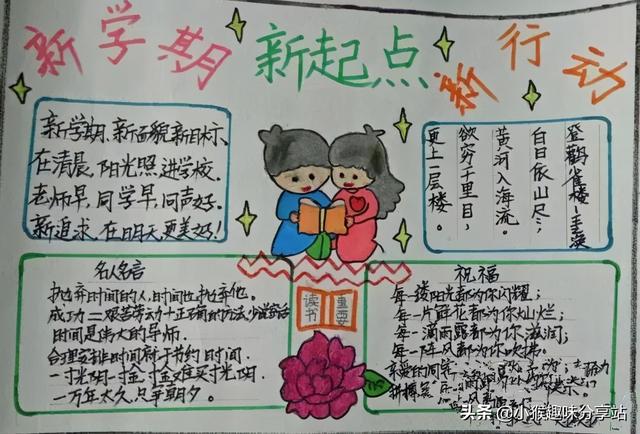 新学期 新起点 新行动
新学期、新面貌新目标、
在清晨,阳光照进学校.
老师早,同学早,同声好.
新追求,在明天更美好!
登鹳雀楼-王
白日依山尽;
黄河入海流。
欲穷千里目,
更上一层楼。
名人名言
抛弃时间的人,时间也抛弃他。
成功=艰苦劳动+正确的方法+少说空话
时间是伟大的导师.
合理安排时间等于节约时间.
一寸光阴一寸金寸金难买寸光阴.
一万年太久,只争朝夕.
读书
重要
祝福
每一缕阳光都为你闪耀;
每一片鲜花都为你灿烂;
每一滴雨露都为你滋润;
每一阵风都为你吹拂
头条 @小猴趣味分享站